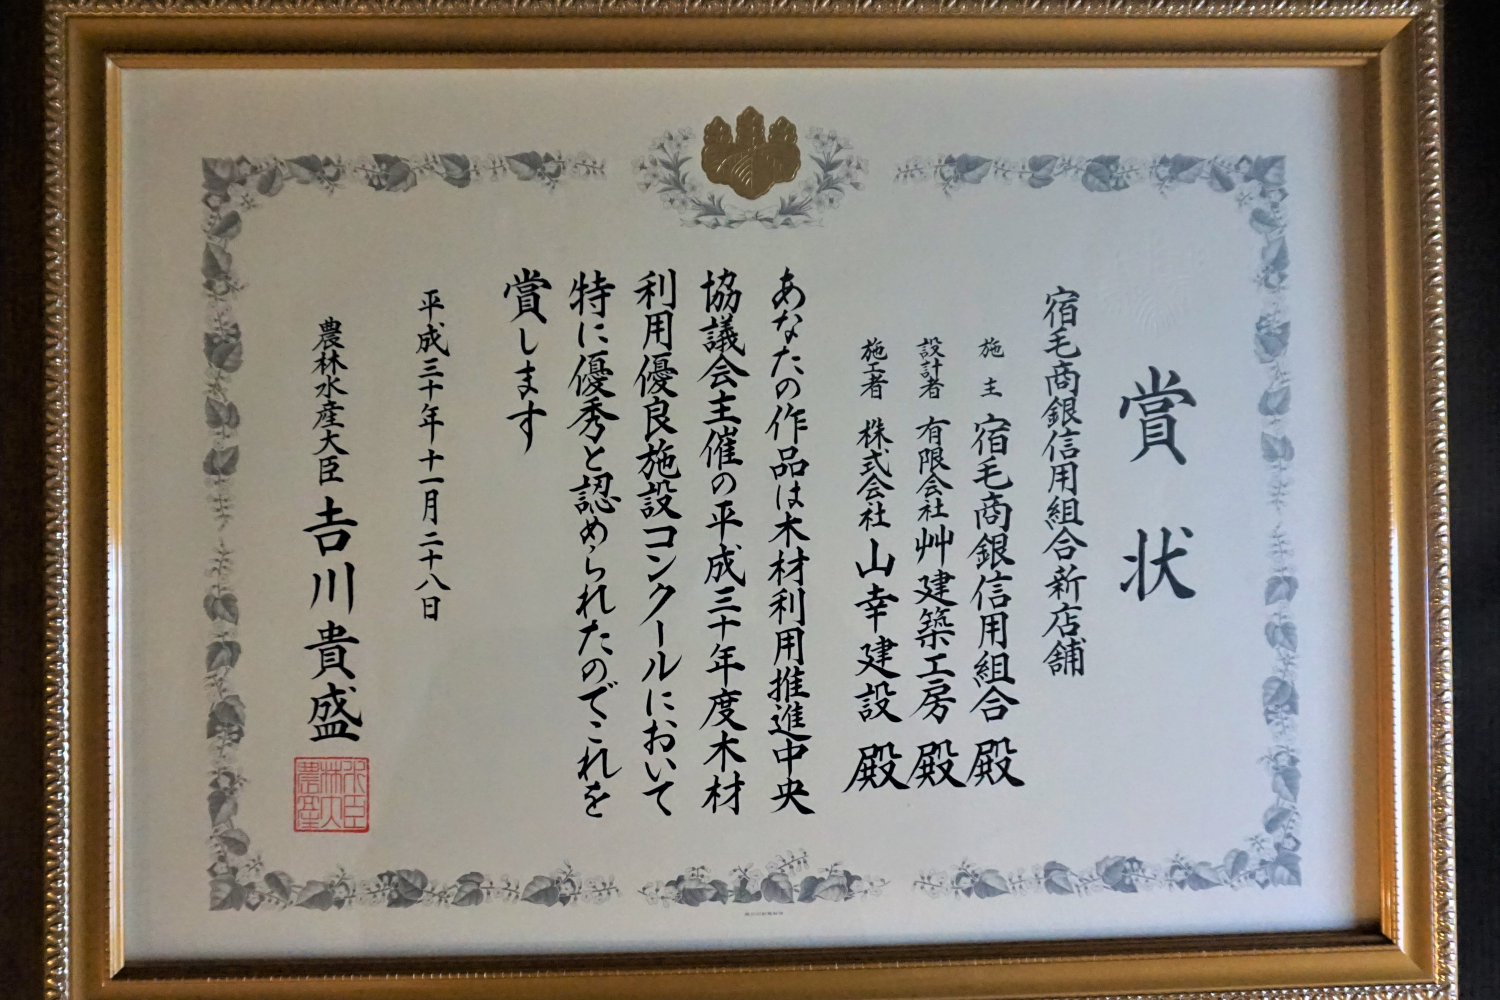 賞状
宿毛商銀信用組合新店舗
施主 宿毛商銀信用組合 殿
設計者 有限会社艸建築工房 殿
施工者 株式会社山幸建設 殿
あなたの作品は木材利用推進中央
協議会主催の平成三十年度木材
利用優良施設コンクールにおいて
特に優秀と認められたのでこれを
賞します
平成三十年十一月二十八日
農林水産大臣 𠮷川貴盛